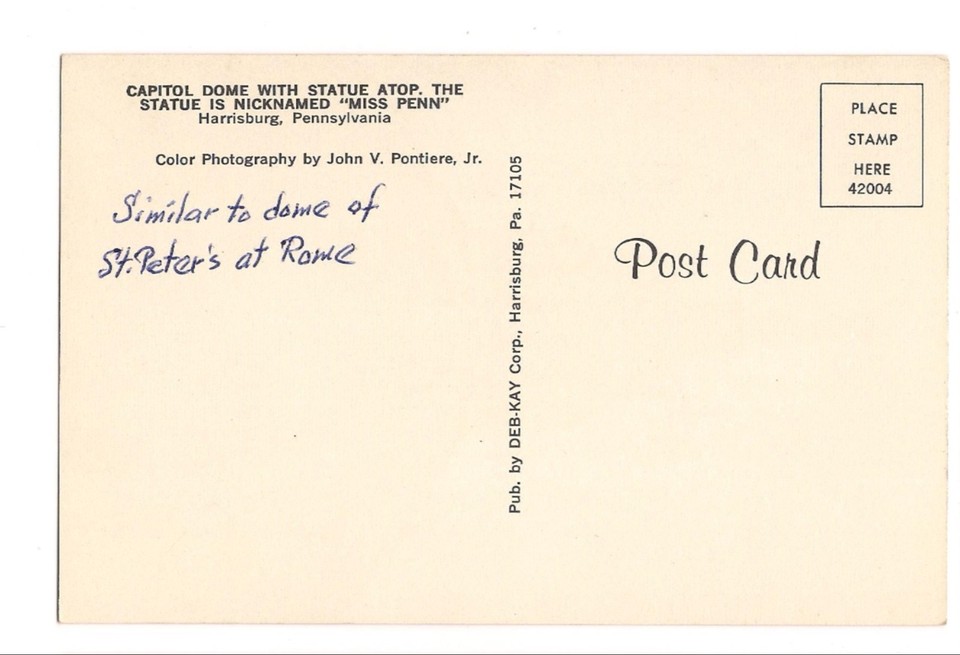 CAPITOL DOME WITH STATUE ATOP. THE
STATUE IS NICKNAMED "MISS PENN"
Harrisburg, Pennsylvania
Color Photography by John V. Pontiere, Jr.
Similar to dome of
St. Peter's at Rome
Pub. by DEB-KAY Corp., Harrisburg, Pa. 17105
PLACE
STAMP
HERE
42004
Post Card